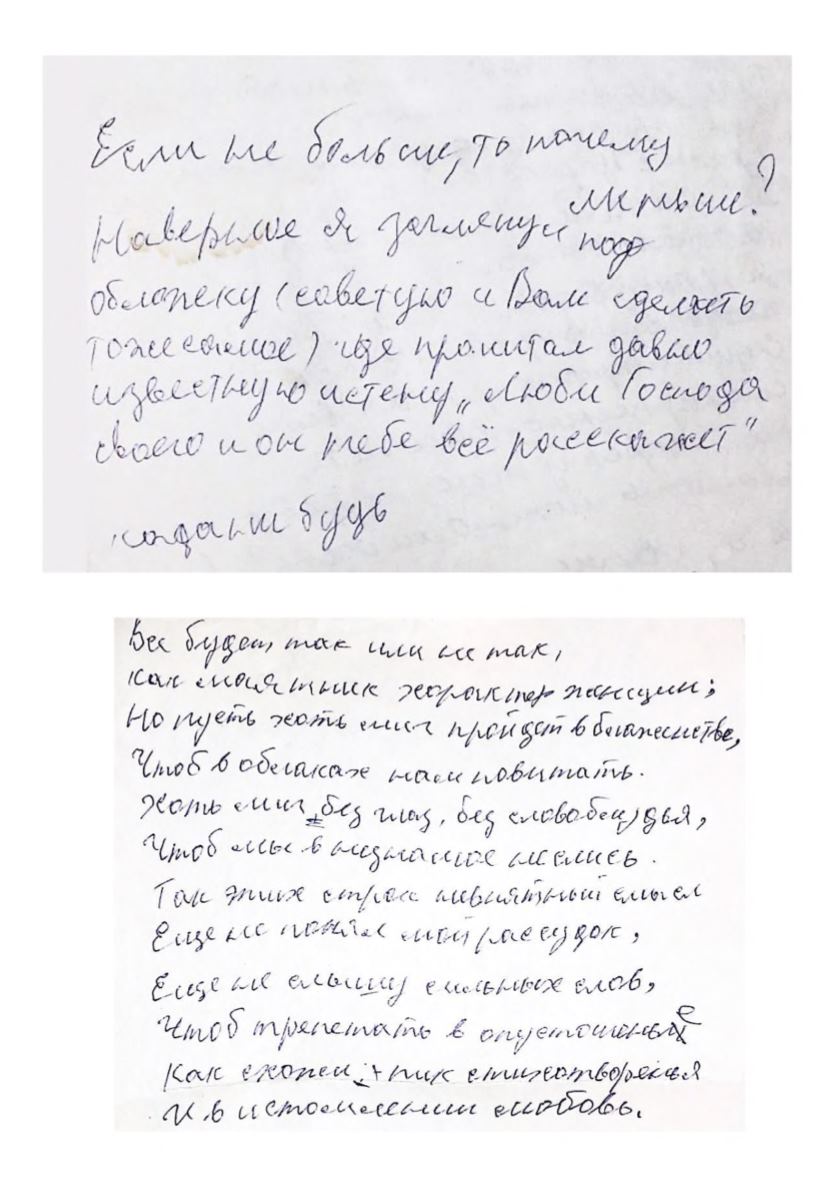 Если не больше, то почему
меньше?
Наверное я заглянул под
обложку (советую и Вам сделать
тоже самое) где прочитал давно
известную истену „Люби Господа
своего и он тебе всё расскажет"
когда ни будь
Все будет так или не так,
Как маятник характер женщин;
Но пусть хоть миг пройдет в блаженстве,
Чтоб в облаках нам повитать.
Хоть миг без глаз, без словоблудья,
Чтоб мы в незнамое неслись.
Так этих строк невнятный смысл
Еще не понял мой рассудок,
Еще не слышу сильных слов,
Чтоб трепетать в опустошенье
Как схожи: + пик стихотворенья
И в истомлении любовь.